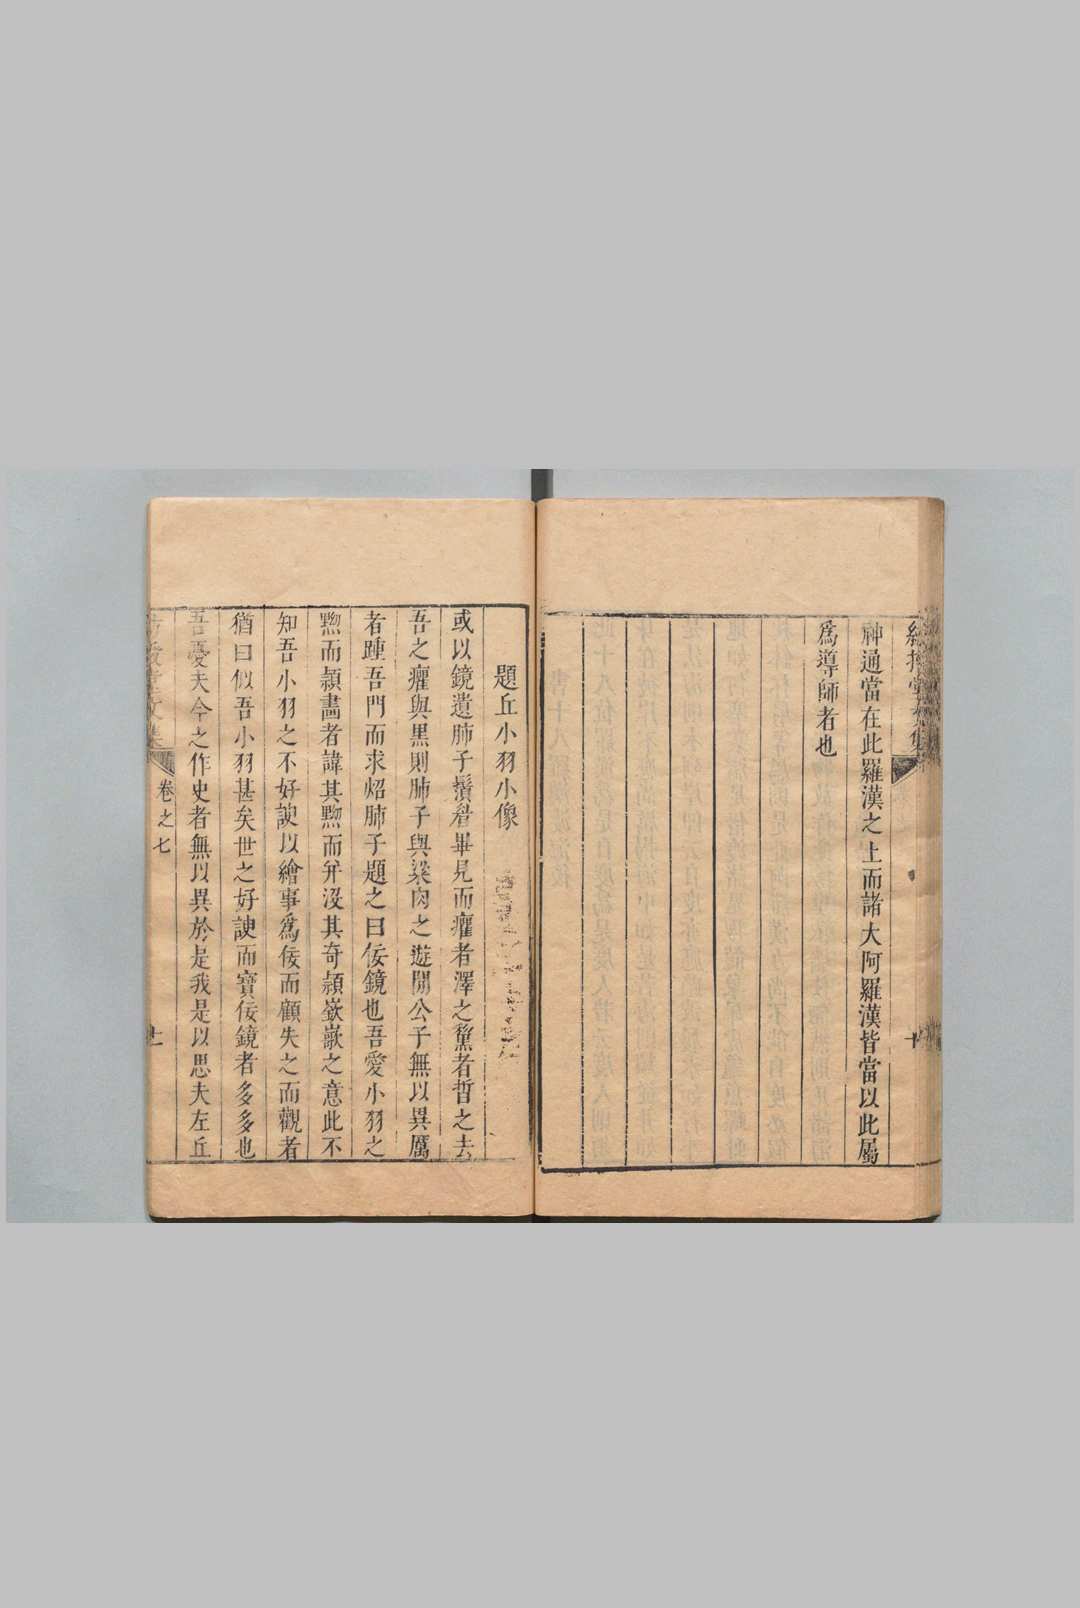 神通當在此羅漢之上而諸大阿羅漢皆當以此屬
爲導師者也
題丘小羽小像
或以鏡遺肺子鬚眷畢見而癯者澤之黧者晳之去
吾之癯與黑則肺子與粱肉之遊閒公子無以異厲
者踵吾門而求炤肺子題之曰佞鏡也吾愛小羽之
黝而頴畵者諱其黝而并没其奇頴嶔嶔之意此不
知吾小羽之不好諛以繪事爲佞而顧失之而觀者
猶曰似吾小羽甚矣世之好諛而寶佞鏡者多多也
吾憂夫今之作史者無以異於是我是以思夫左丘
卷之七